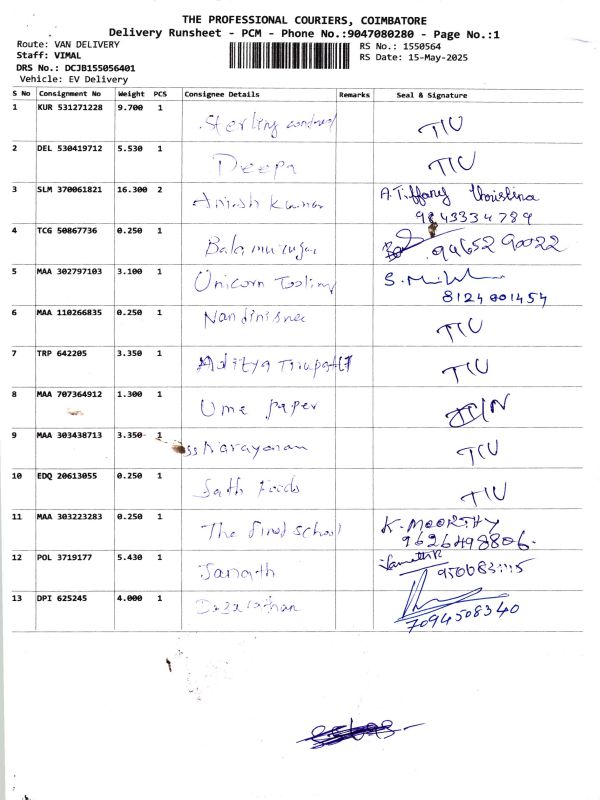 THE PROFESSIONAL COURIERS, COIMBATORE
Delivery Runsheet - PCM - Phone No.:9047080280 - Page No.:1
Route: VAN DELIVERY RS No.: 1550564
Staff: VIMAL RS Date: 15-May-2025
DRS No.: DCJB155056401
Vehicle: EV Delivery
S No Consignment No Weight PCS Consignee Details Remarks Seal & Signature
1 KUR 531271228 9.700 1 Sterling T/U
2 DEL 530419712 5.530 1 Deepa T/U
3 SLM 370061821 16.300 2 Anish Kumar A. Tiffany Christina
9843334789
4 TCG 50867736 0.250 1 Balamurugan 94652 90022
5 MAA 302797103 3.100 1 Unicorn Tooling S.
8124001454
6 MAA 110266835 0.250 1 Nandinisree T/U
7 TRP 642205 3.350 1 Aditya Tirupathi T/U
8 MAA 707364912 1.300 1 Ume paper
9 MAA 303438713 3.350 1 ss Narayanan T/U
10 EDQ 20613055 0.250 1 Sath Foods T/U
11 MAA 303223283 0.250 1 The first school K. MOORTHY
9626498806.
12 POL 3719177 5.430 1 Janath
13 DPI 625245 4.000 1 7094508340